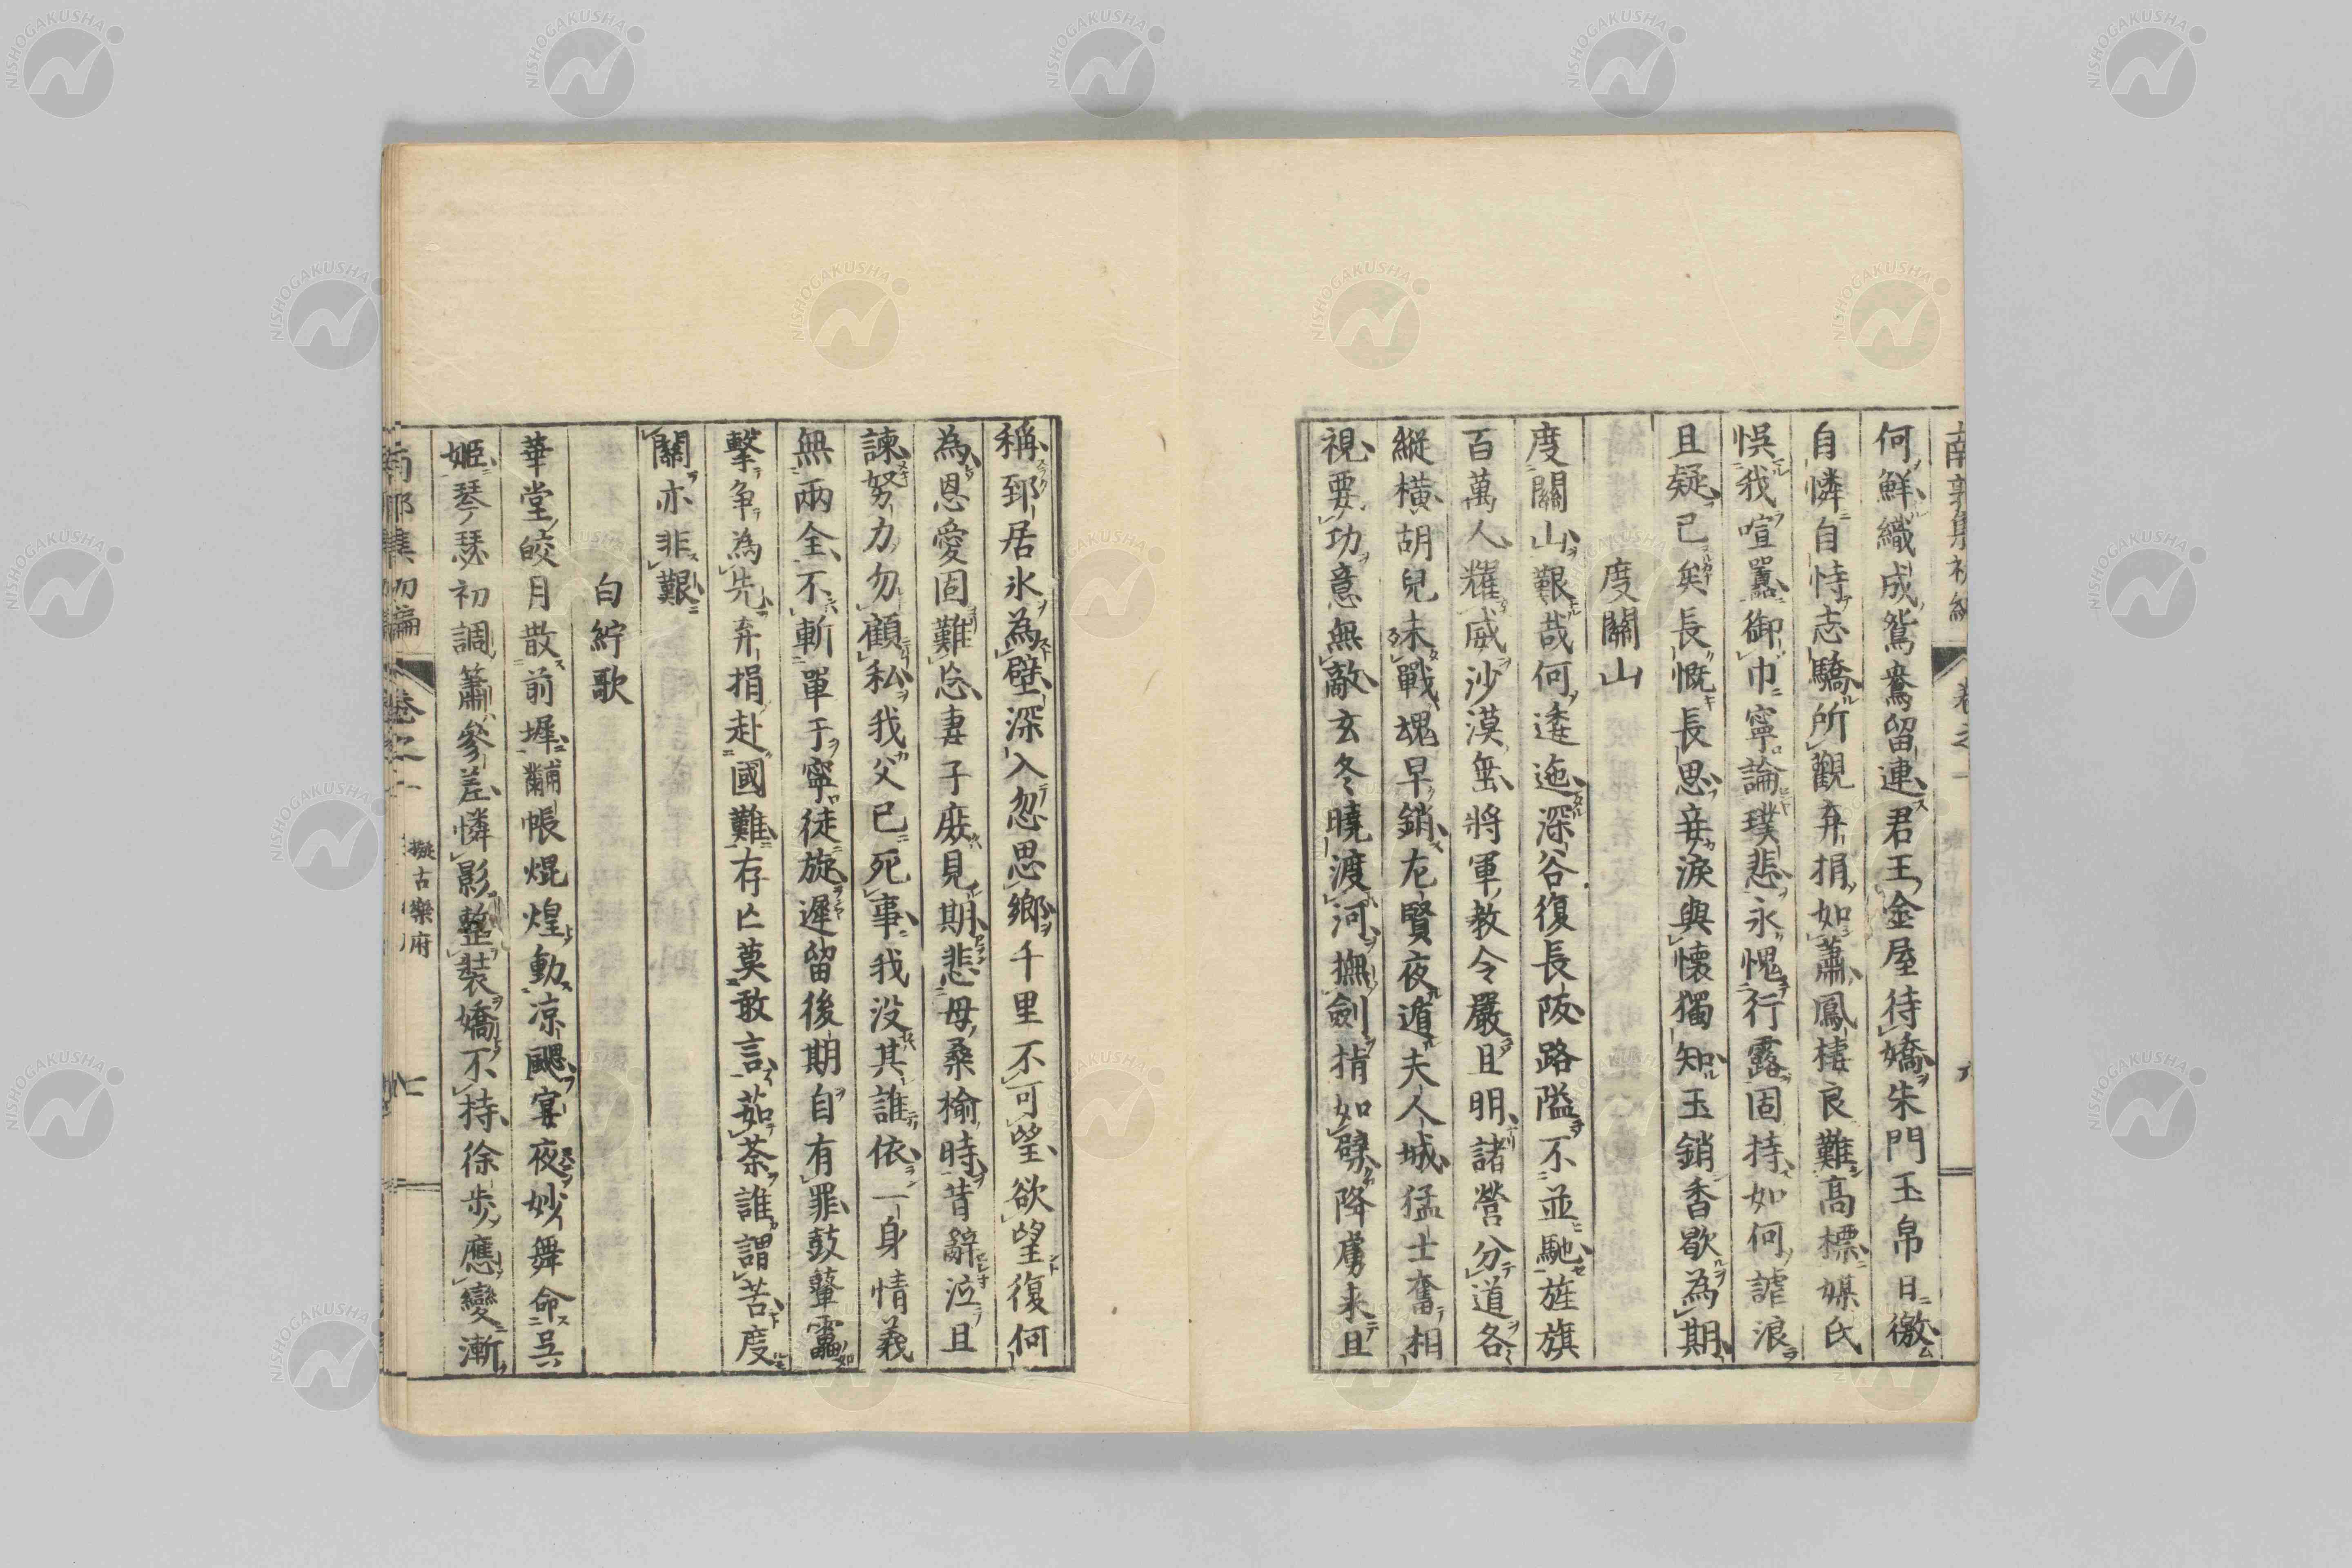 何鮮織成鴛鴦留連君王金屋待嬌朱門玉帛日徼
自憐自恃志驕所觀弃捐如蕭鳳棲良難高標媒氏
悞我喧嚣御巾寧論璞悲永愧行露固持如何謔浪
且疑已矣長慨長思妾淚與懐獨知玉銷香歇為期
度關山
度關山艱哉何逶迤深谷復長陂路隘不並馳旌旗
百萬人耀威沙漠無將軍教令嚴且明諸營分道各
縱横胡兒未戰魂早銷左賢夜遁夫人城猛士奮相
視要功意無敵玄冬曉渡河撫劍指如劈降虜来且
稱郅居氷為壁深入忽思鄉千里不可望欲望復何
為恩愛固難忘妻子庶見期悲母桑榆時昔辭泣且
諫努力勿顧私我父已死事我没其誰依一身情義
無兩全不斬單于寧徒旋遲留後期自有罪鼓鼙靁
擊争為先弃捐赴國難存亡莫敢言茹荼誰謂苦度
關亦非艱
白紵歌
華堂皎月散前墀黼帳焜煌動凉颸宴夜妙舞命呉
姬琴瑟初調簫參差憐影整装嬌不持徐步應變漸
南郭集初編 卷之一 擬古樂府
NISHOGAKUSHA